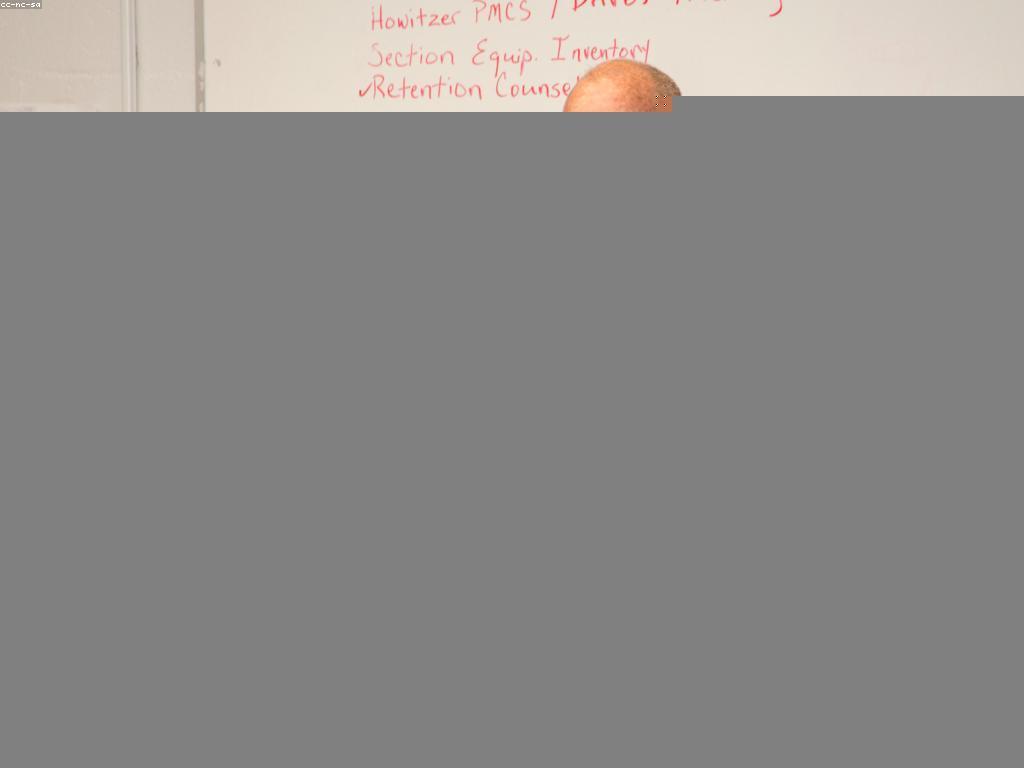 cc-nc-sa
Howitzer PMCS /
Section Equip. Inventory
✓Retention Counse